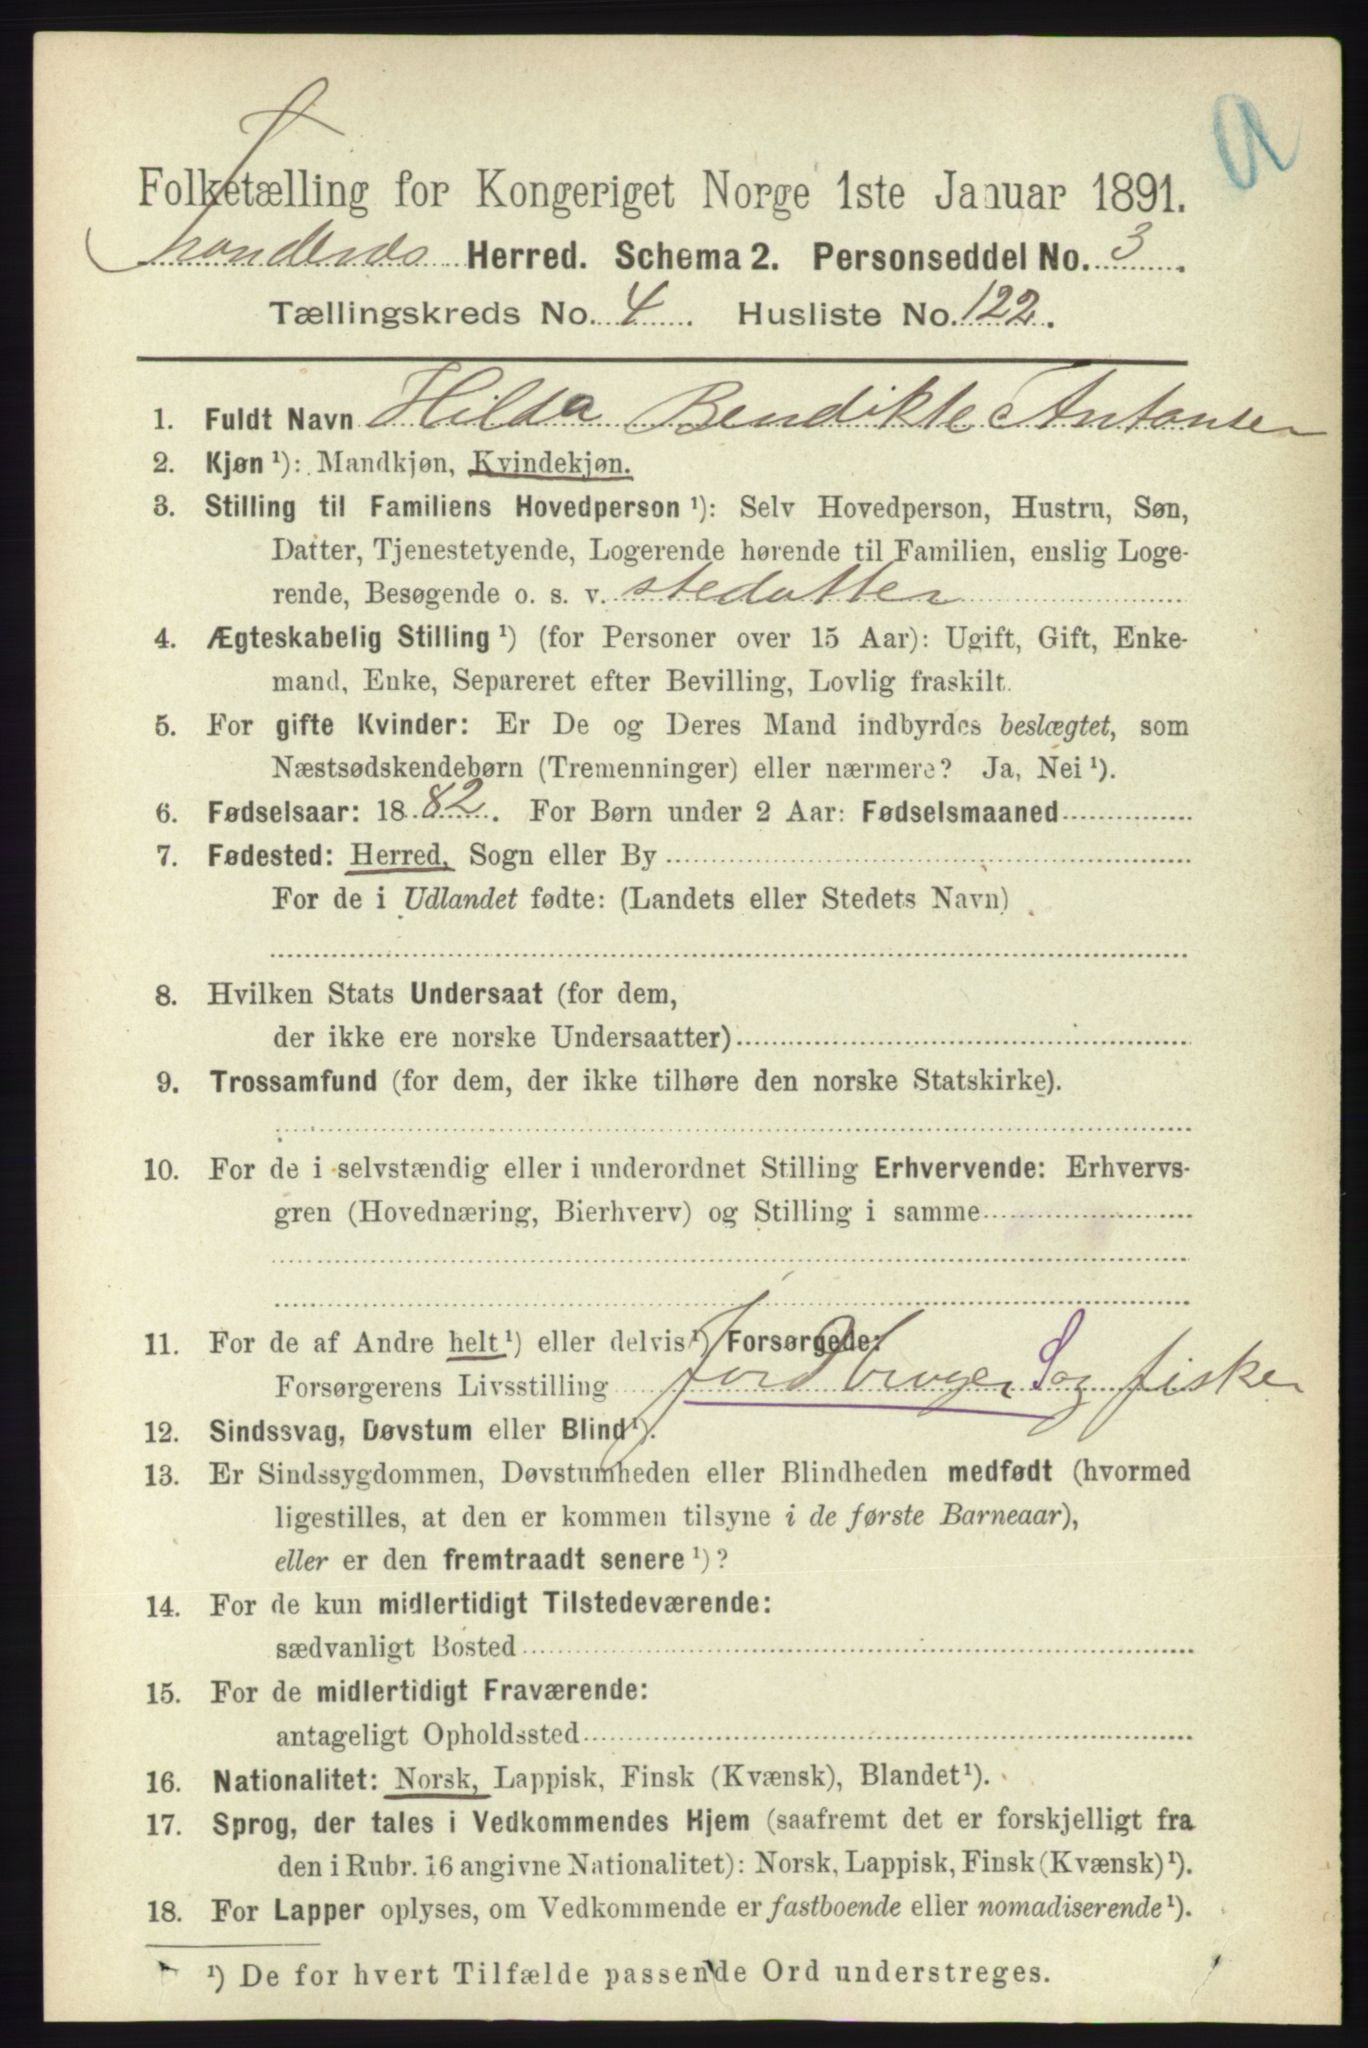 a
Folketælling for Kongeriget Norge 1ste Januar 1891.
Trondenæs Herred. Schema 2. Personseddel No. 3.
Tællingskreds No. 4. Husliste No. 122.
1. Fuldt Navn Hilda Bendikte Antonsen
2. Kjøn ¹): Mandkjøn, Kvindekjøn.
3. Stilling til Familiens Hovedperson ¹): Selv Hovedperson, Hustru, Søn,
Datter, Tjenestetyende, Logerende hørende til Familien, enslig Loge-
rende, Besøgende o. s. v. stedatter
4. Ægteskabelig Stilling ¹) (for Personer over 15 Aar): Ugift, Gift, Enke-
mand, Enke, Separeret efter Bevilling, Lovlig fraskilt.
5. For gifte Kvinder: Er De og Deres Mand indbyrdes beslægtet, som
Næstsødskendebørn (Tremenninger) eller nærmere? Ja, Nei ¹).
6. Fødselsaar: 1882. For Børn under 2 Aar: Fødselsmaaned
7. Fødested: Herred, Sogn eller By
For de i Udlandet fødte: (Landets eller Stedets Navn)
8. Hvilken Stats Undersaat (for dem,
der ikke ere norske Undersaatter)
9. Trossamfund (for dem, der ikke tilhøre den norske Statskirke).
10. For de i selvstændig eller i underordnet Stilling Erhvervende: Erhvervs-
gren (Hovednæring, Bierhverv) og Stilling i samme
11. For de af Andre helt ¹) eller delvis ¹) Forsørgede:
Forsørgerens Livsstilling Jordbruger S og fisker
12. Sindssvag, Døvstum eller Blind ¹).
13. Er Sindssygdommen, Døvstumheden eller Blindheden medfødt (hvormed
ligestilles, at den er kommen tilsyne i de første Barneaar),
eller er den fremtraadt senere ¹)?
14. For de kun midlertidigt Tilstedeværende:
sædvanligt Bosted
15. For de midlertidigt Fraværende:
antageligt Opholdssted
16. Nationalitet: Norsk, Lappisk, Finsk (Kvænsk), Blandet ¹).
17. Sprog, der tales i Vedkommendes Hjem (saafremt det er forskjelligt fra
den i Rubr. 16 angivne Nationalitet): Norsk, Lappisk, Finsk (Kvænsk) ¹).
18. For Lapper oplyses, om Vedkommende er fastboende eller nomadiserende ¹).
¹) De for hvert Tilfælde passende Ord understreges.